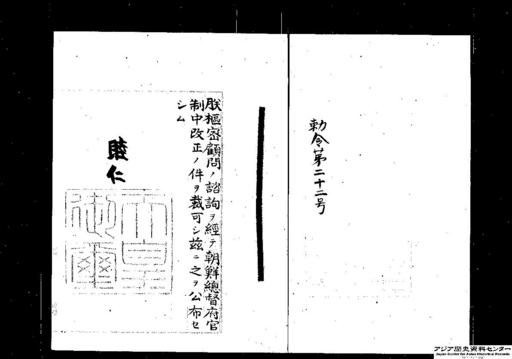 勅令第二十二号
朕樞密顧問ノ諮詢ヲ經テ朝鮮總督府官
制中改正ノ件ヲ裁可シ茲ニ之ヲ公布セ
シム
睦仁
天皇
御璽
アジア歴史資料センター
Japan Center for Asian Historical Records